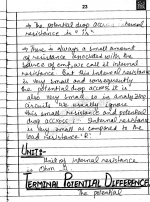 23
→ The potential drop across internal
resistance is "Ir"
→ There is always a small amount
of resistance associated with the
source of emf, we call it internal
resistance. but this internal resistance
is very small and consequently
the potential drop across it is
also very small so in analyzing
circuits we usually ignore
this small resistance and potential
drop across. Internal resistance
is very small as compared to the
load resistance 'R'.
UNIT:-
Unit of internal resistance
Ohm
TERMINAL POTENTIAL DIFFERENCE
The potential